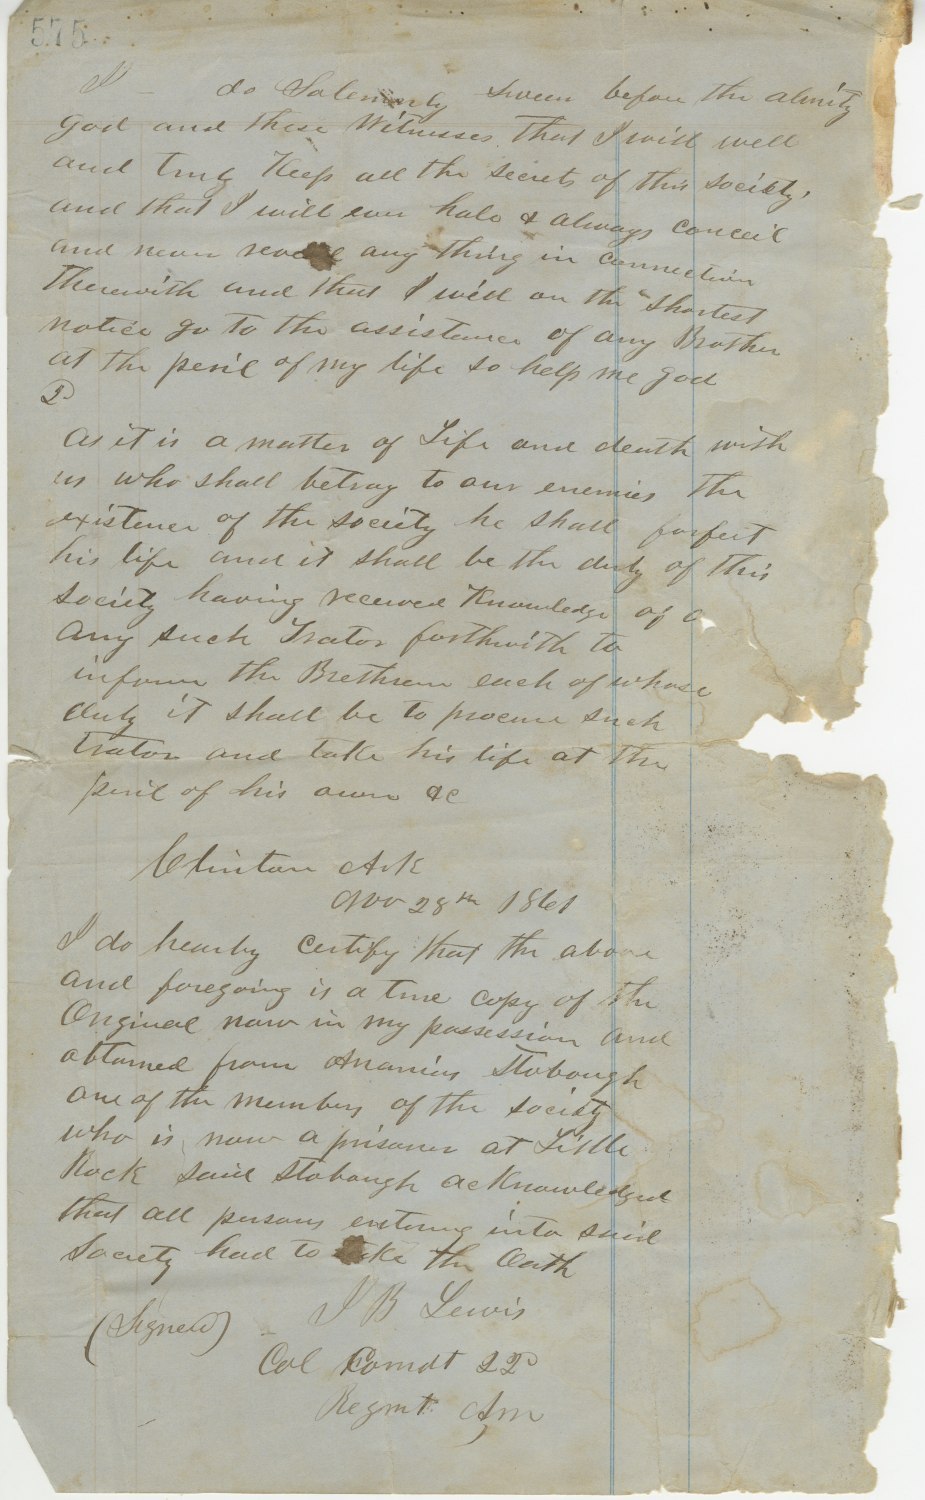 575
I — do Solemnly Sweer before the almity
god and these Witnesses that I will well
and truly Keep all the secrets of this society,
and that I will ever hale & always conceil
and never reveal any thing in connection
Therewith and that I will on the shortest
notice go to the assistance of any Brother
at the peril of my life so help me god
2
As it is a matter of Life and death with
us who shall betray to our enemies the
existence of the society he shall forfeit
his life and it shall be the duty of this
Society having received Knowledge of a
any such Trator forthwith to
inform the Brethren each of whose
duty it shall be to procure such
trator and take his life at the
peril of his own &c
Clinton Ark
Nov 28th 1861
I do hearby certify that the above
and foregoing is a true copy of the
Original now in my possession and
obtained from Ananias Stobough
one of the members of the society
who is now a prisoner at Little
Rock said Stobough acknowledged
that all persons entering into said
Society had to take the Oath
(Signed) J B Lewis
Col Comdt 2
Regmt